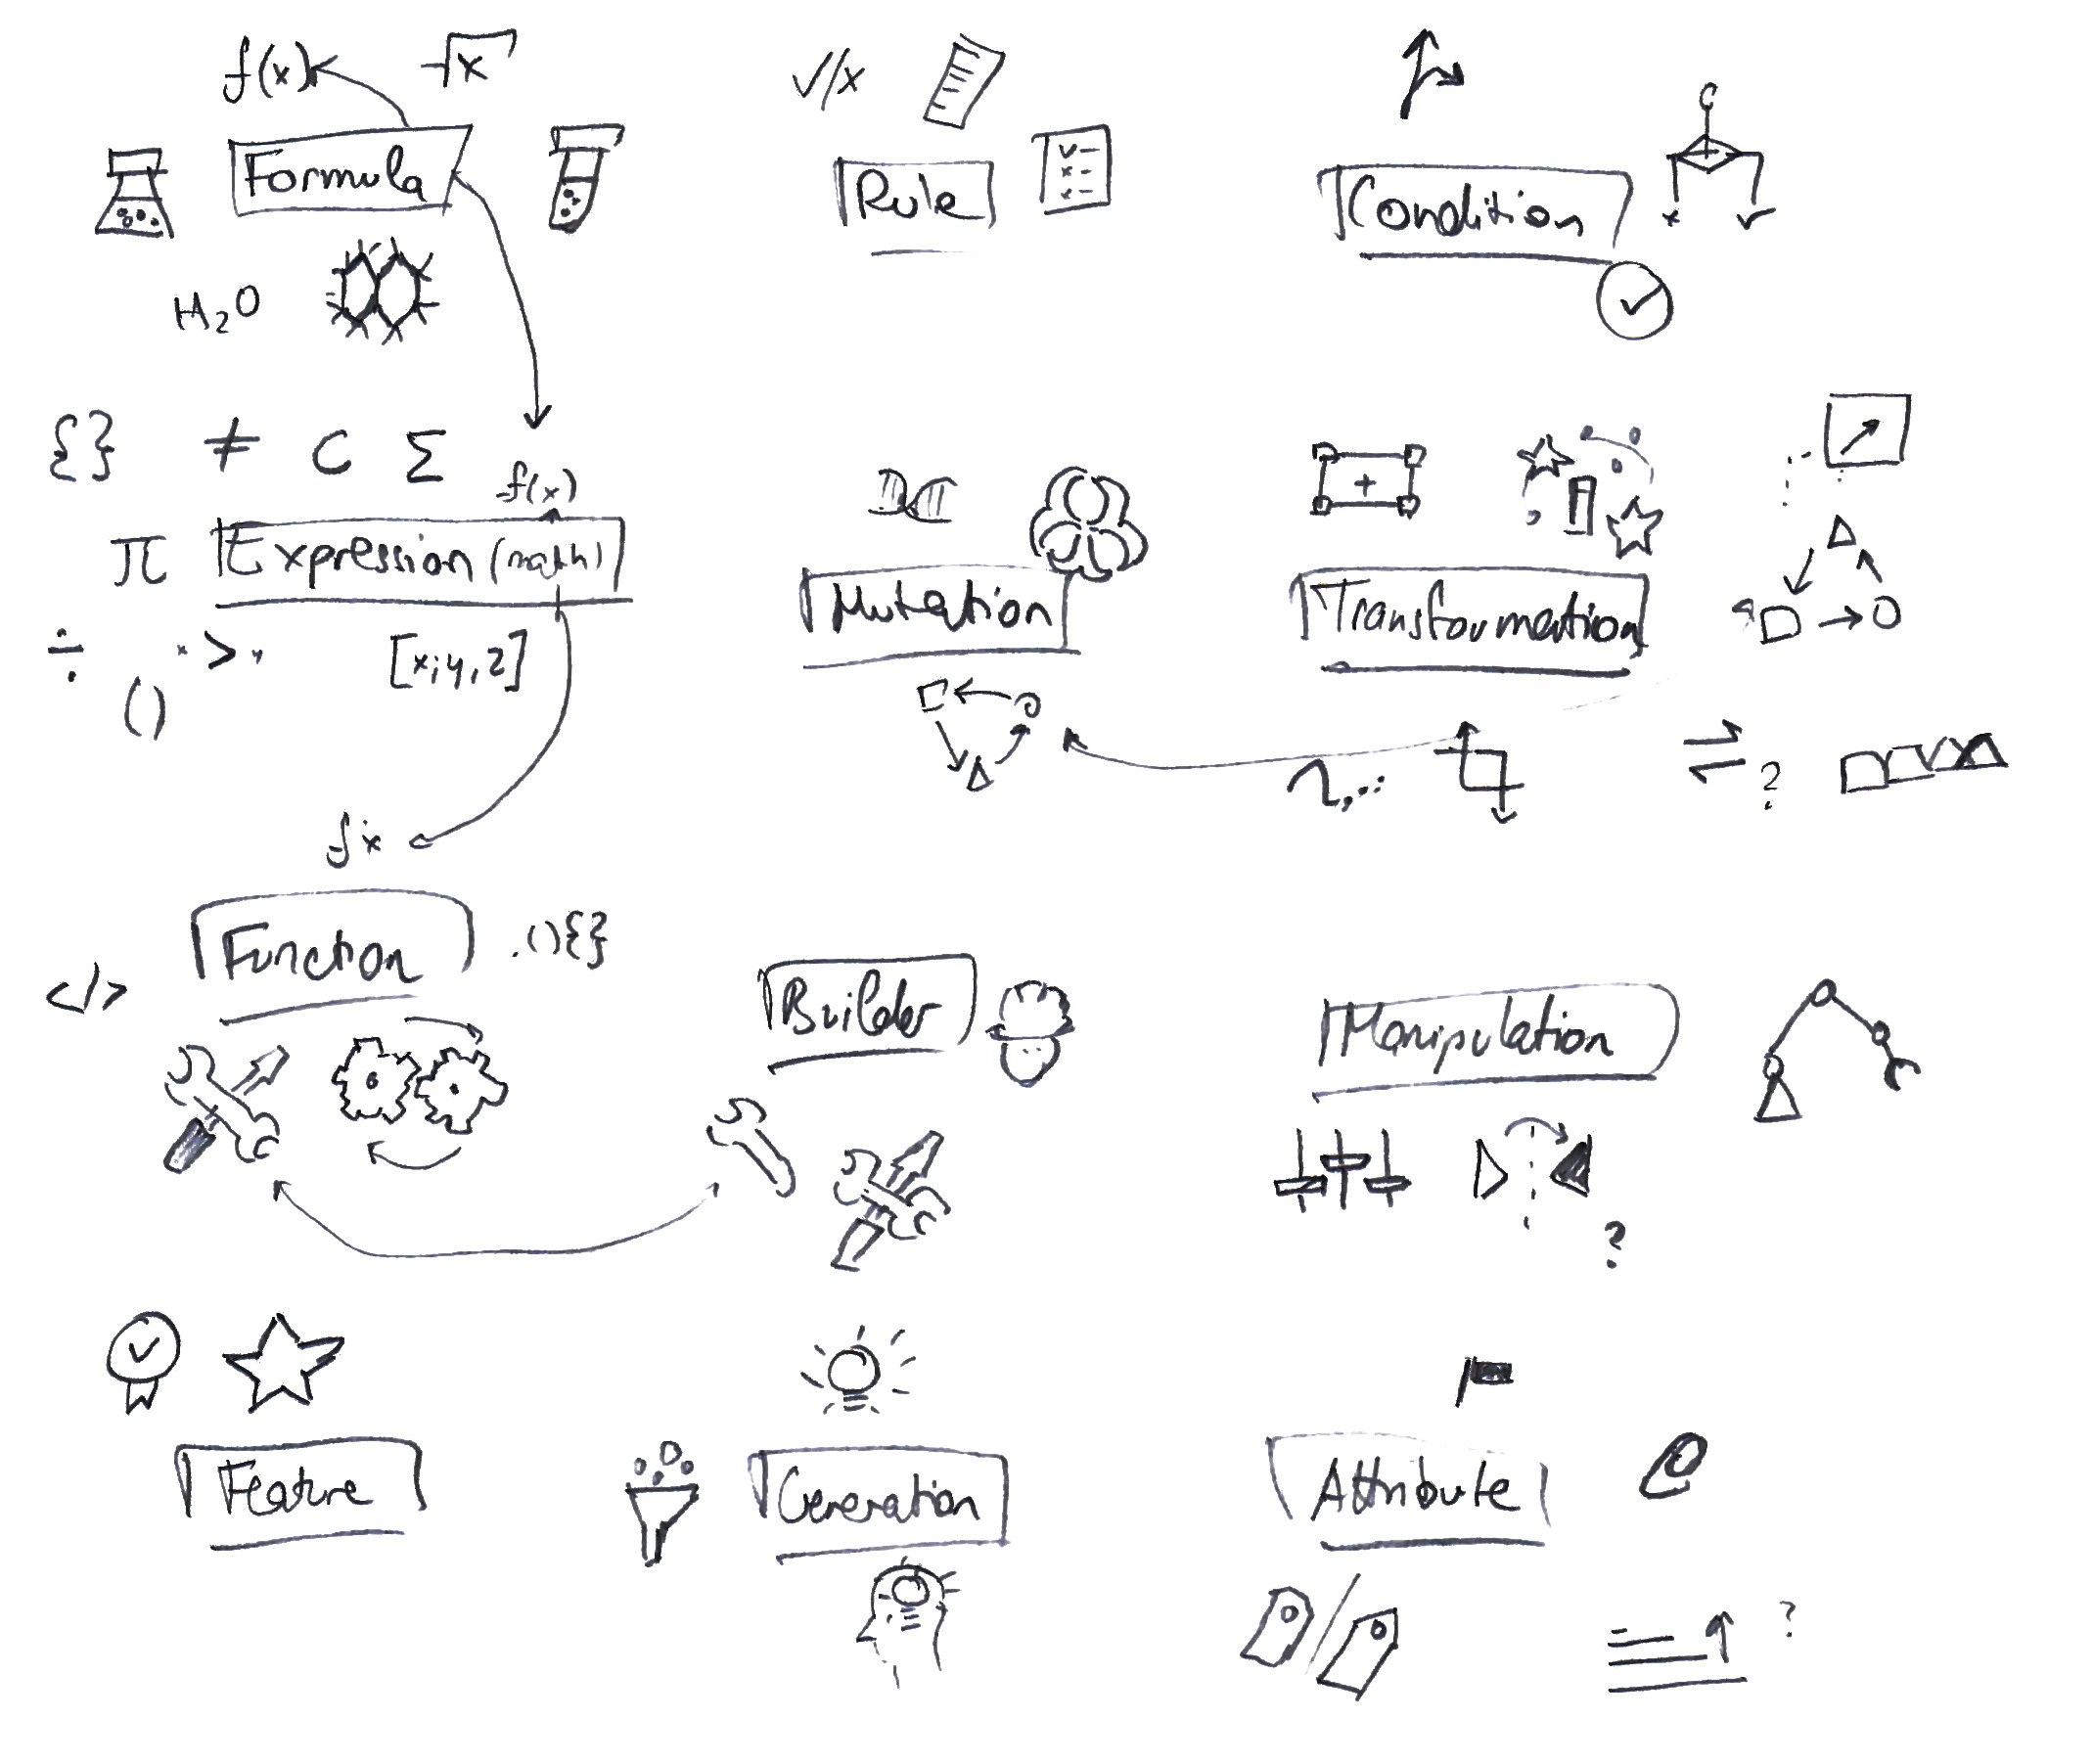 f(x)
√x
✓/x
Formula
Rule
✓-
x-
x-
Condition
C
x ✓
H₂O
{} ≠ C Σ
f(x)
π Expression (math)
÷ () "x > y" [x,y,2]
Mutation
Transformation
?
fx
Function
.(){}
</>
Builder
Manipulation
?
Feature
Generation
Attribute
?